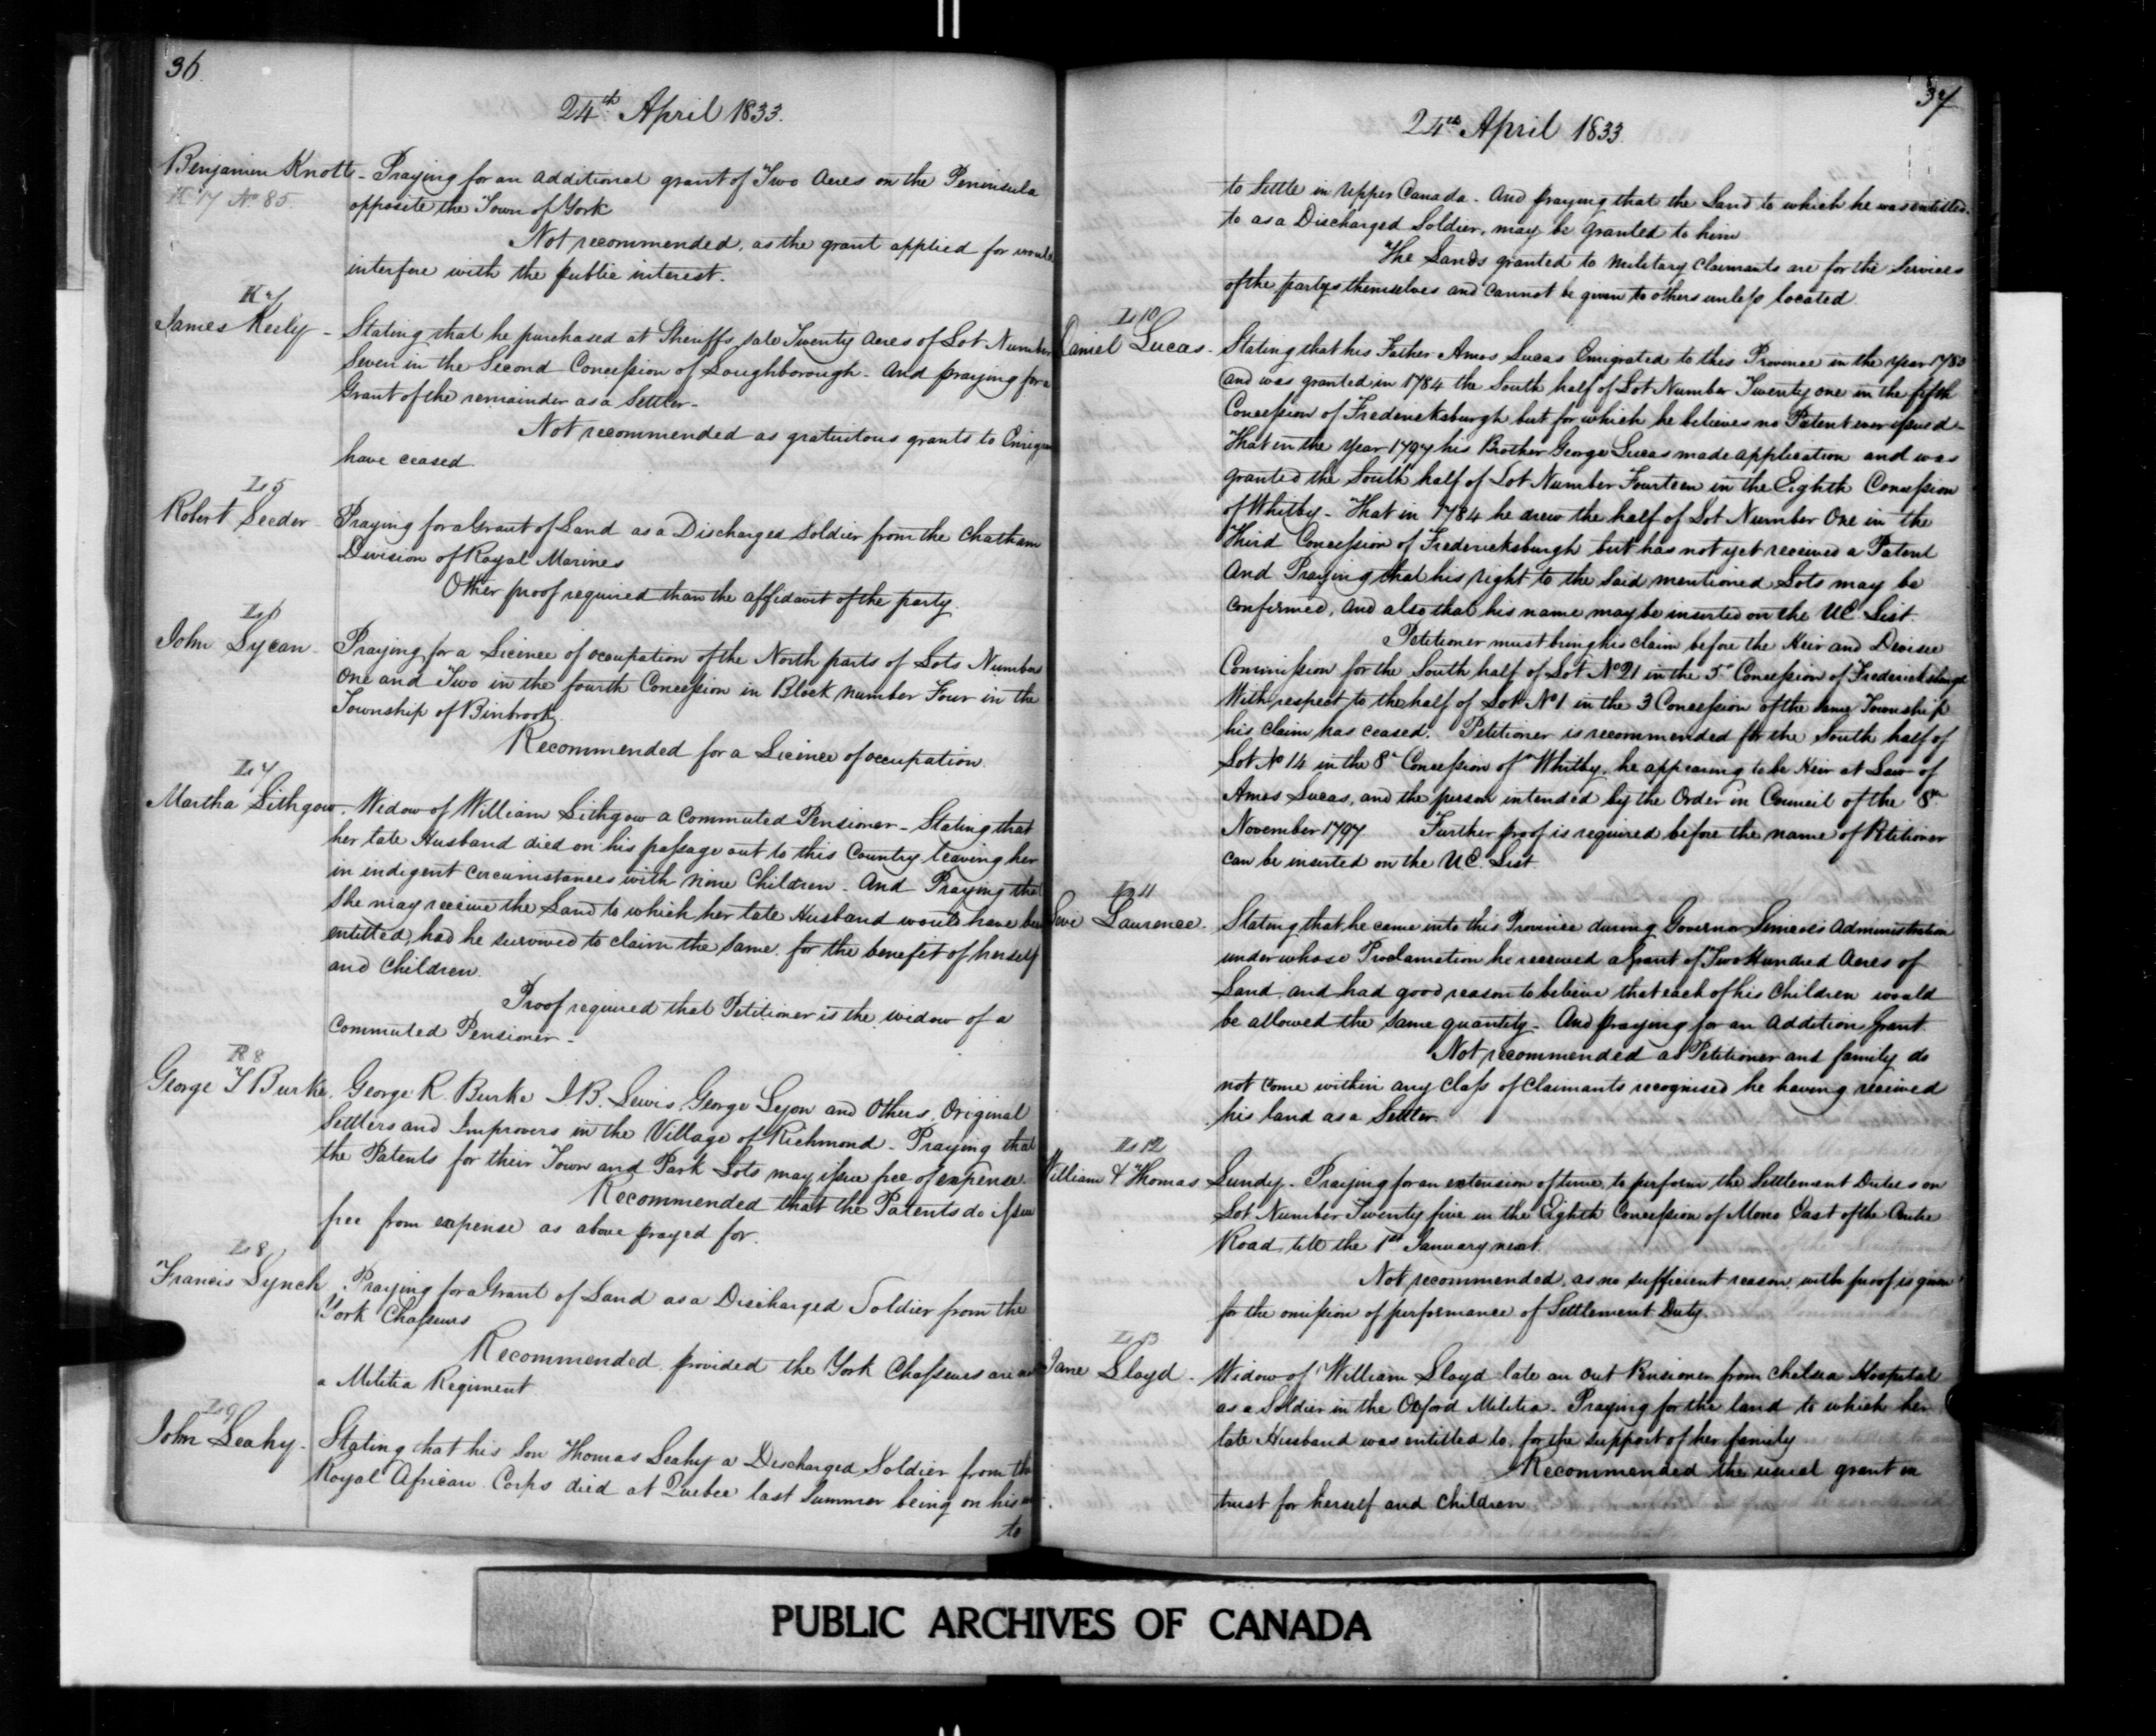 36.
24th April 1833.
Benjamin Knotts - Praying for an additional grant of Two Acres on the Peninsula
K 17 No 85.
opposite the Town of York
Not recommended, as the grant applied for would
interfere with the public interest.
James Keeley - Stating that he purchased at Sheriffs sale Twenty Acres of Lot Number
Seven in the Second Concession of Loughborough - And praying for a
Grant of the remainder as a Settler -
Not recommended as gratuitous grants to
have ceased.
L 5
Robert Leeder - Praying for a Grant of Land as a Discharged Soldier from the Chatham
Division of Royal Marines
Other proof required than the affidavit of the party.
L 6
John Lycan - Praying for a Licence of occupation of the North parts of Lots Number
One and Two in the fourth Concession in Block number Four in the
Township of Binbrook.
Recommended for a Licence of occupation.
L 7
Martha Lithgow. Widow of William Lithgow a Commuted Pensioner - Stating that
her late Husband died on his passage out to this Country leaving her
in indigent circumstances with nine Children - And Praying that
She may receive the Land to which her late Husband would have been
entitled, had he survived to claim the same. for the benefit of herself
and Children.
Proof required that Petitioner is the widow of a
Commuted Pensioner -
R 8
George T Burke. George R. Burke J.B. Lewis, George Lyon and Others, Original
Settlers and Improvers in the Village of Richmond - Praying that
the Patents for their Town and Park Lots may issue free of expense.
Recommended that the Patents do issue
free from expense as above prayed for.
L 8
Francis Lynch. Praying for a Grant of Land as a Discharged Soldier from the
York Chasseurs
Recommended. provided the York Chasseurs are not
a Militia Regiment
L 9
John Leahy - Stating that his Son Thomas Leahy a Discharged Soldier from the
Royal African Corps died at Quebec last Summer being on his
to
37
24th April 1833.
to Settle in Upper Canada - And praying that the Land to which he was entitled
to as a Discharged Soldier, may be granted to him
The Lands granted to Military Claimants are for the Services
of the partys themselves and cannot be given to others unless located.
L 10
Daniel Lucas - Stating that his Father Amos Lucas Emigrated to this Province in the year 1783
And was granted in 1784 the South half of Lot Number Twenty one in the fifth
Concession of Fredericksburgh but for which he believes no Patent ever issued -
That in the Year 1797 his Brother George Lucas made application and was
granted the South half of Lot Number Fourteen in the Eighth Concession
of Whitby - That in 1784 he drew the half of Lot Number One in the
Third Concession of Fredericksburgh but has not yet received a Patent
And Praying that his right to the Said mentioned Lots may be
confirmed, And also that his name may be inserted on the UE List.
Petitioner must bring his claim before the Heir and Devisee
Commission for the South half of Lot No 21 in the 5th Concession of Fredericksburgh
With respect to the half of Lot No 1 in the 3 Concession of the same Township
his claim has ceased. Petitioner is recommended for the South half of
Lot No 14 in the 8th Concession of Whitby, he appearing to be Heir at Law of
Amos Lucas, and the person intended by the Order in Council of the 8th
November 1797. Further proof is required before the name of Petitioner
can be inserted on the UE List.
L 11
Levi Laurence. Stating that he came into this Province during Governor Simcoes Administration
under whose Proclamation he received a Grant of Two Hundred Acres of
Land, and had good reason to believe that each of his Children would
be allowed the same quantity - And praying for an Addition Grant.
Not recommended as Petitioner and family do
not come within any Class of Claimants recognised he having received
his land as a Settler.
L 12
William & Thomas Lundy - Praying for an extension of time to perform the Settlement Duties on
Lot Number Twenty five in the Eighth Concession of Mono East of the Centre
Road, till the 1st January next.
Not recommended, as no sufficient reason with proof is given
for the omission of performance of Settlement Duty.
L 13
Jane Lloyd - Widow of William Lloyd late an Out Pensioner from Chelsea Hospital
as a Soldier in the Oxford Militia - Praying for the land to which her
late Husband was entitled to, for the support of her family
Recommended the usual grant in
trust for herself and Children.
PUBLIC ARCHIVES OF CANADA